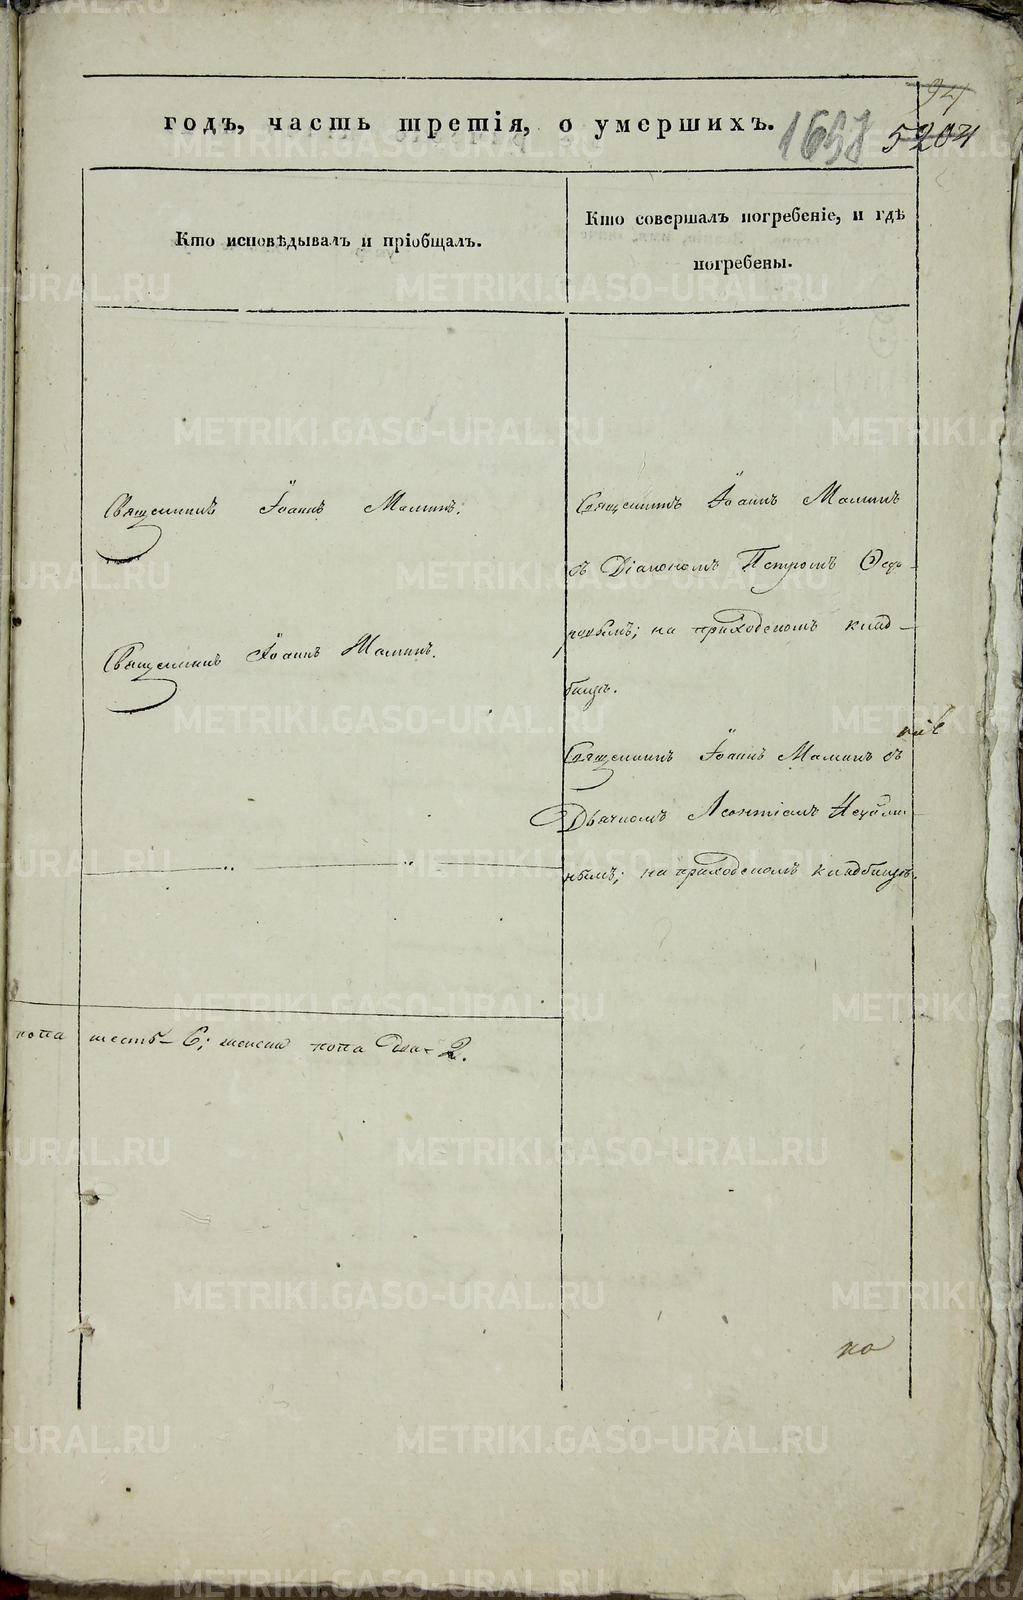 годъ, часть третія, о умершихъ.
5204
Кто исповѣдывалъ и пріобщалъ.
Кто совершалъ погребеніе, и гдѣ
погребены.
Священникъ Іоаннъ Маминъ.
Священникъ Іоаннъ Маминъ
съ Діакономъ Петромъ Ѳедо-
ровымъ; на приходскомъ клад-
бищѣ.
Священникъ Іоаннъ Маминъ.
Священникъ Іоаннъ Маминъ съ
Дьячкомъ Леонтіемъ
на приходскомъ кладбищѣ.
пола шесть 6; женска пола два 2.
по
METRIKI.GASO-URAL.RU